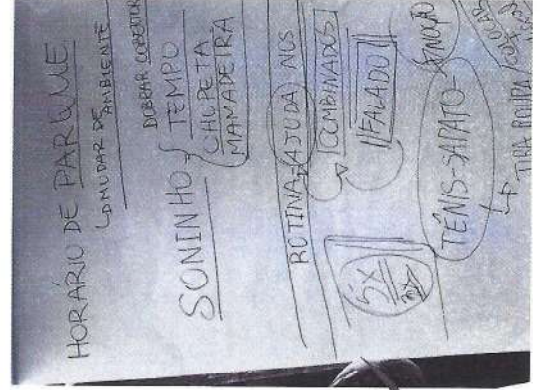 HORÁRIO DE PARQUE
↳ MUDAR DE AMBIENTE
DOBRAR COBERTOR
SONINHO = { TEMPO
CHUPETA
MAMADEIRA
ROTINA → AJUDA NOS
COMBINADOS
FALADO
5x
TÊNIS-SAPATO-
↳ TIRA ROUPA